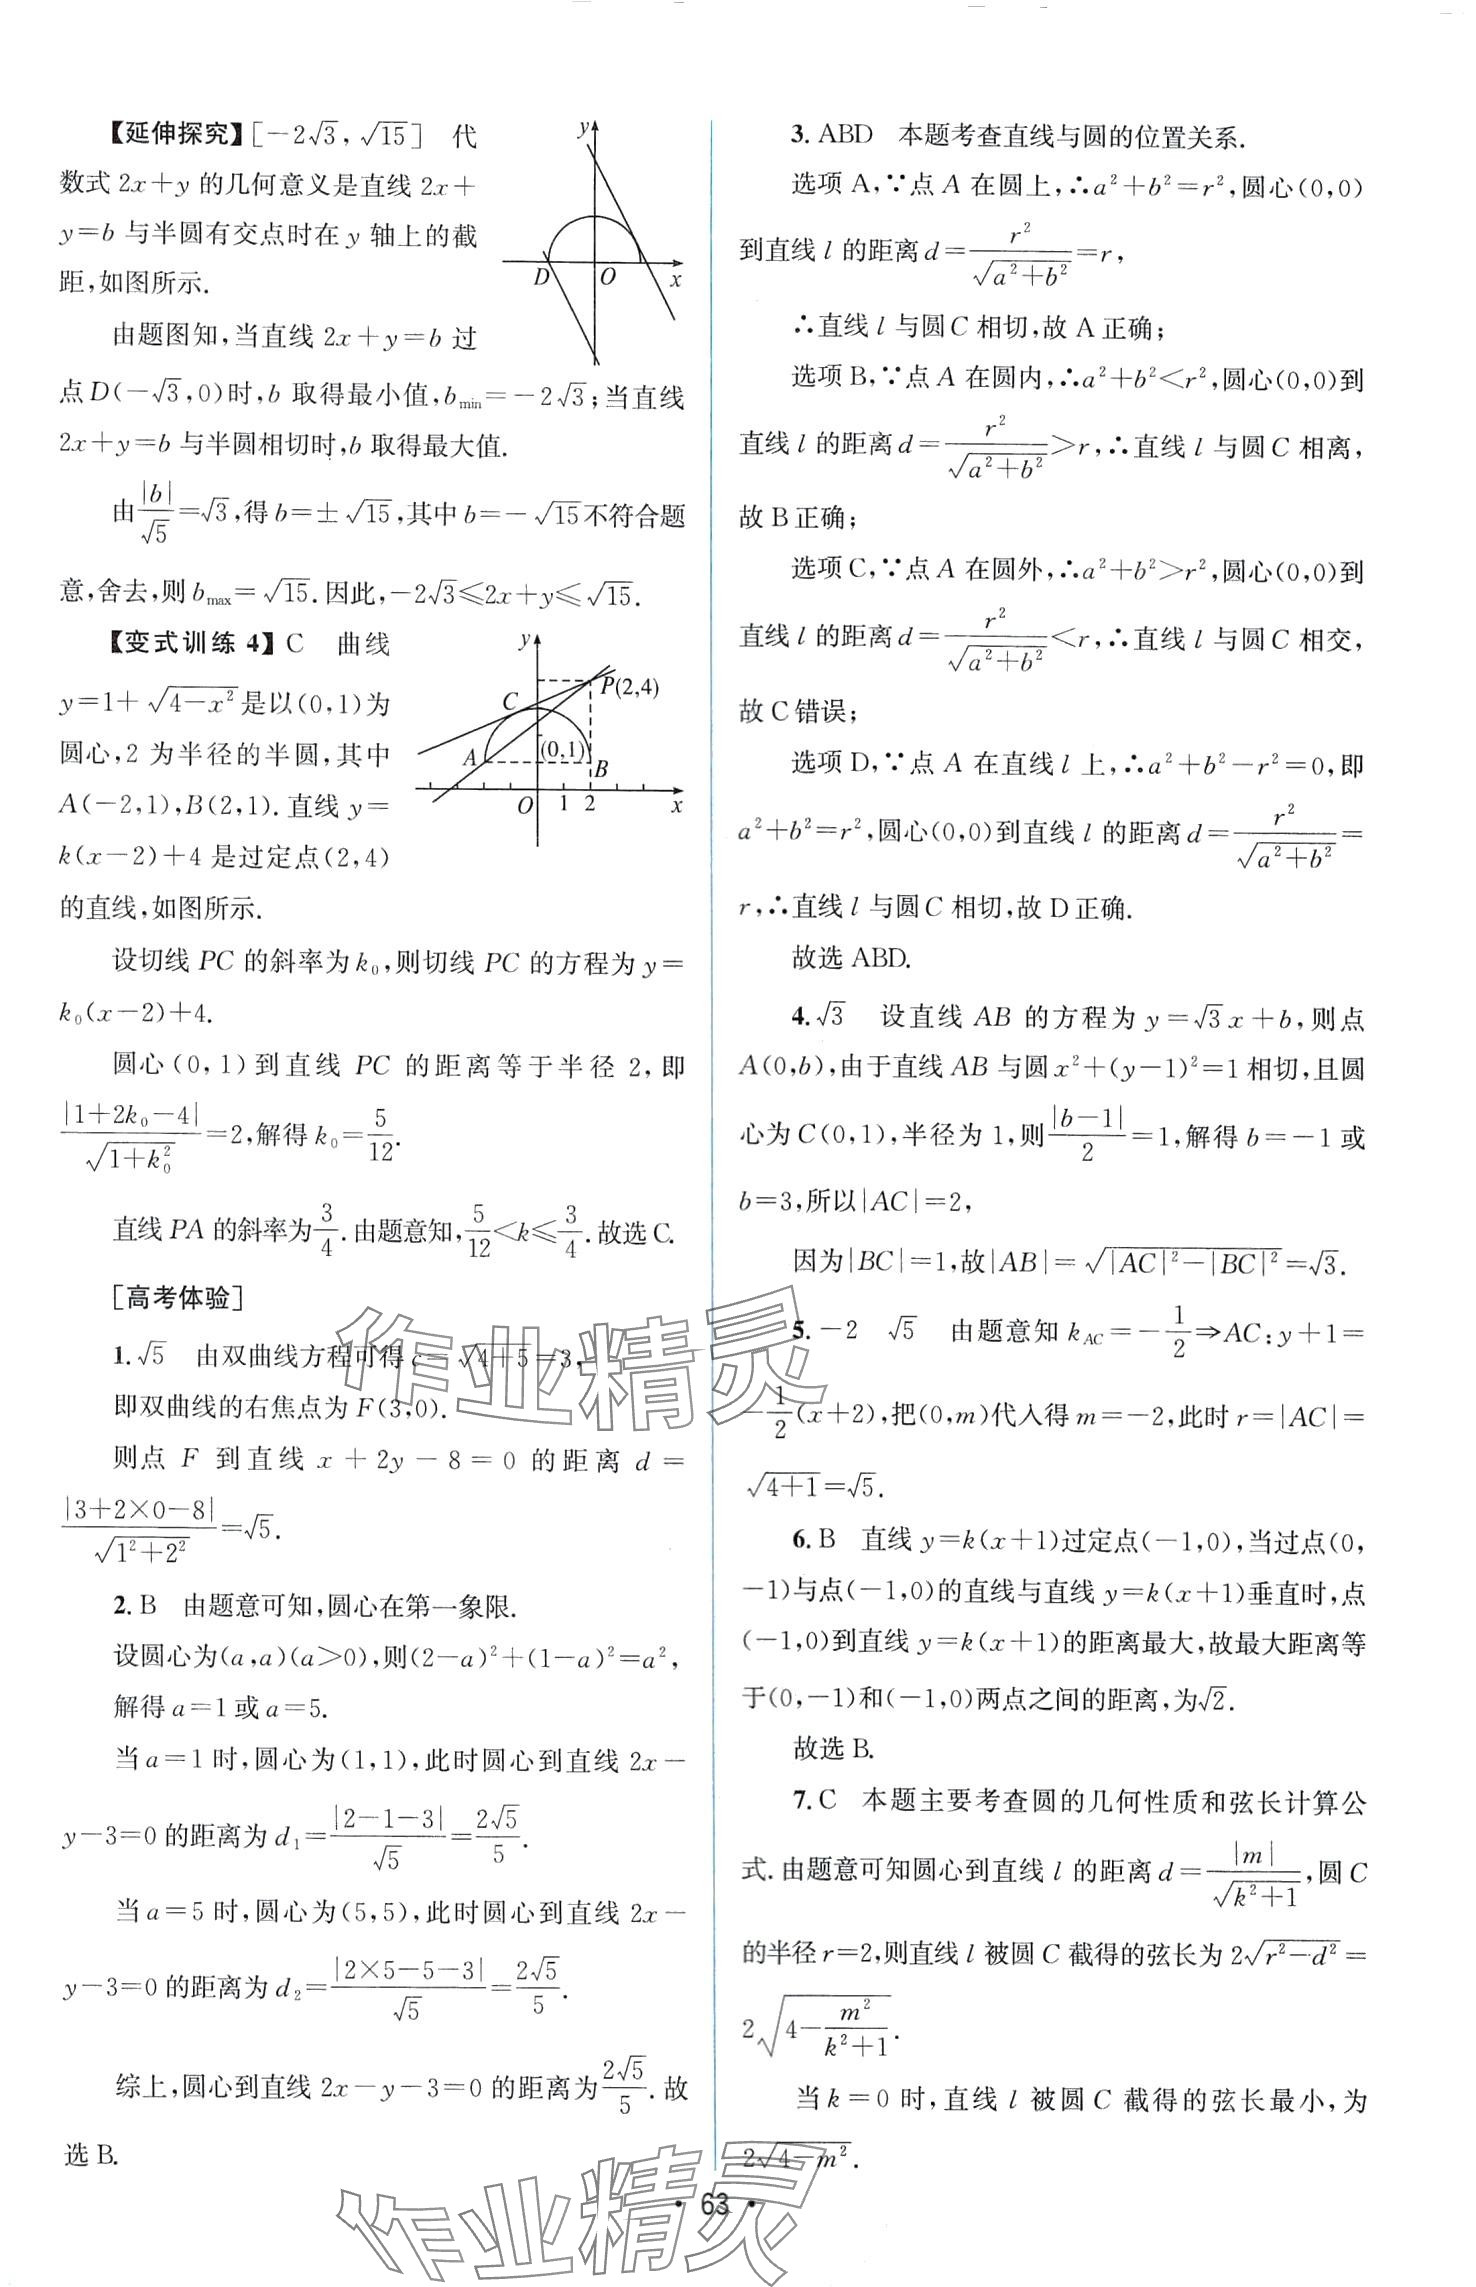 【延伸探究】[-2√3, √15]　代
数式 2x+y 的几何意义是直线 2x+
y=b 与半圆有交点时在 y 轴上的截
距,如图所示.
y
D
O
x
由题图知,当直线 2x+y=b 过
点 D(-√3,0)时,b 取得最小值,b_min=-2√3;当直线
2x+y=b 与半圆相切时,b 取得最大值.
由|b|/√5=√3,得 b=±√15,其中 b=-√15不符合题
意,舍去,则 b_max=√15.因此,-2√3≤2x+y≤√15.
【变式训练 4】C　曲线
y=1+√(4-x²)是以(0,1)为
圆心,2 为半径的半圆,其中
A(-2,1),B(2,1).直线 y=
k(x-2)+4 是过定点(2,4)
的直线,如图所示.
y
P(2,4)
C
A
(0,1)
B
O 1 2 x
设切线 PC 的斜率为 k₀,则切线 PC 的方程为 y=
k₀(x-2)+4.
圆心(0,1)到直线 PC 的距离等于半径 2,即
|1+2k₀-4|/√(1+k₀²)=2,解得 k₀=5/12.
直线 PA 的斜率为3/4.由题意知,5/12<k≤3/4.故选 C.
[高考体验]
1.√5　由双曲线方程可得 c=√(4+5)=3,
即双曲线的右焦点为 F(3,0).
则点 F 到直线 x+2y-8=0 的距离 d=
|3+2×0-8|/√(1²+2²)=√5.
2.B　由题意可知,圆心在第一象限.
设圆心为(a,a)(a>0),则(2-a)²+(1-a)²=a²,
解得 a=1 或 a=5.
当 a=1 时,圆心为(1,1),此时圆心到直线 2x-
y-3=0 的距离为 d₁=|2-1-3|/√5=2√5/5.
当 a=5 时,圆心为(5,5),此时圆心到直线 2x-
y-3=0 的距离为 d₂=|2×5-5-3|/√5=2√5/5.
综上,圆心到直线 2x-y-3=0 的距离为2√5/5.故
选 B.
3.ABD　本题考查直线与圆的位置关系.
选项 A,∵点 A 在圆上,∴a²+b²=r²,圆心(0,0)
到直线 l 的距离 d=r²/√(a²+b²)=r,
∴直线 l 与圆 C 相切,故 A 正确;
选项 B,∵点 A 在圆内,∴a²+b²<r²,圆心(0,0)到
直线 l 的距离 d=r²/√(a²+b²)>r,∴直线 l 与圆 C 相离,
故 B 正确;
选项 C,∵点 A 在圆外,∴a²+b²>r²,圆心(0,0)到
直线 l 的距离 d=r²/√(a²+b²)<r,∴直线 l 与圆 C 相交,
故 C 错误;
选项 D,∵点 A 在直线 l 上,∴a²+b²-r²=0,即
a²+b²=r²,圆心(0,0)到直线 l 的距离 d=r²/√(a²+b²)=
r,∴直线 l 与圆 C 相切,故 D 正确.
故选 ABD.
4.√3　设直线 AB 的方程为 y=√3x+b,则点
A(0,b),由于直线 AB 与圆 x²+(y-1)²=1 相切,且圆
心为 C(0,1),半径为 1,则|b-1|/2=1,解得 b=-1 或
b=3,所以|AC|=2,
因为|BC|=1,故|AB|=√(|AC|²-|BC|²)=√3.
5.-2　√5　由题意知 k_AC=-1/2⇒AC:y+1=
-1/2(x+2),把(0,m)代入得 m=-2,此时 r=|AC|=
√(4+1)=√5.
6.B　直线 y=k(x+1)过定点(-1,0),当过点(0,
-1)与点(-1,0)的直线与直线 y=k(x+1)垂直时,点
(-1,0)到直线 y=k(x+1)的距离最大,故最大距离等
于(0,-1)和(-1,0)两点之间的距离,为√2.
故选 B.
7.C　本题主要考查圆的几何性质和弦长计算公
式.由题意可知圆心到直线 l 的距离 d=|m|/√(k²+1),圆 C
的半径 r=2,则直线 l 被圆 C 截得的弦长为 2√(r²-d²)=
2√(4-m²/(k²+1)).
当 k=0 时,直线 l 被圆 C 截得的弦长最小,为
2√(4-m²).
作业精灵
作业精灵
· 63 ·